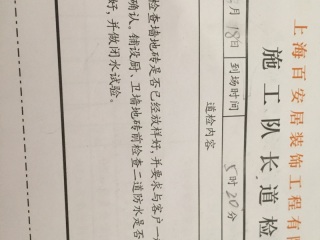 上海百安居装饰工程有
施工队长道检
月18日 到场时间 5时20分
道检内容
检查墙地砖是否已经放样好,并要求与客户一
确认。铺设厨、卫墙地砖前检查二道防水是否
好,并做闭水试验。